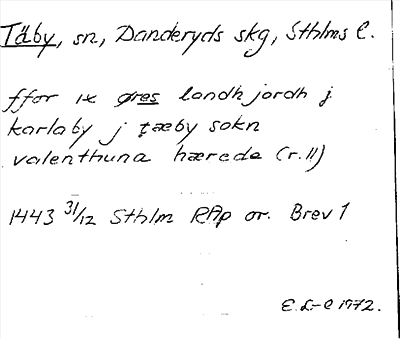 Täby, sn, Danderyds skg, Sthlms l.
ffor ix øres landh jordh j
karlaby j tæby sokn
valenthuna hærede (r.11)
1443 31/12 Sthlm RAp or. Brev 1
E.L-e 1972.